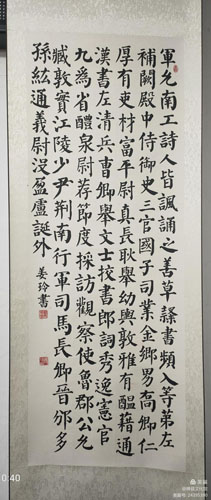 軍允南工詩人皆諷誦之善草隸書頻入等第左
補闕殿中侍御史三官國子司業金鄉男喬卿仁
厚有吏材富平尉真長耿舉幼輿敦雅有醞藉通
漢書左清兵曹卿舉文士校書郎詞秀逸憲官
九為省醴泉尉荐節度採訪觀察使魯郡公允
臧敦實江陵少尹荊南行軍司馬長卿晉邠多
孫紘通義尉沒盈盧誕外
姜玲書
0:40